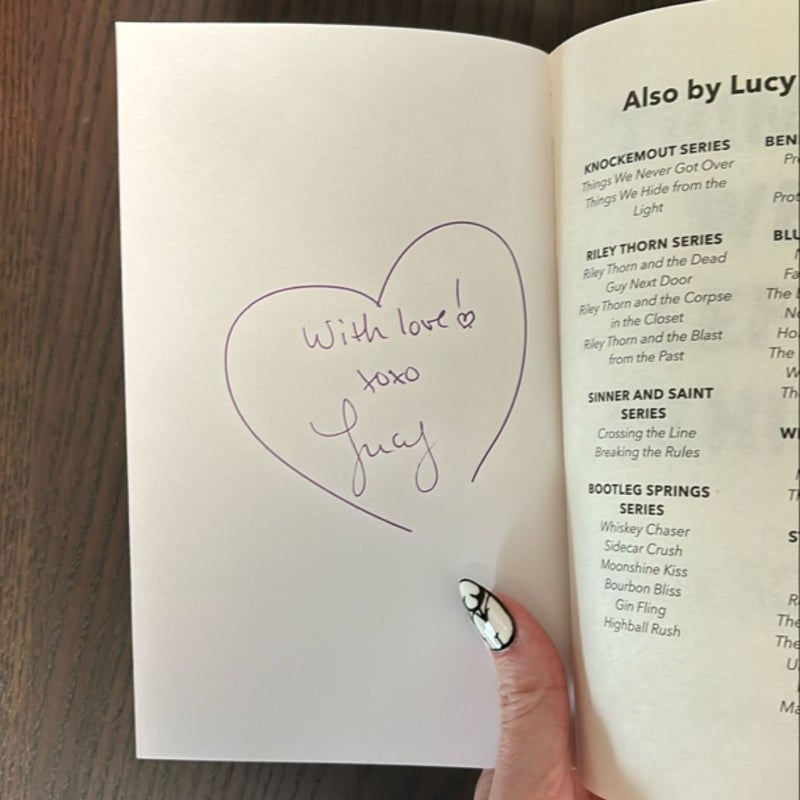 With love!
xoxo
Lucy
Also by Lucy
KNOCKEMOUT SERIES
Things We Never Got Over
Things We Hide from the
Light
RILEY THORN SERIES
Riley Thorn and the Dead
Guy Next Door
Riley Thorn and the Corpse
in the Closet
Riley Thorn and the Blast
from the Past
SINNER AND SAINT
SERIES
Crossing the Line
Breaking the Rules
BOOTLEG SPRINGS
SERIES
Whiskey Chaser
Sidecar Crush
Moonshine Kiss
Bourbon Bliss
Gin Fling
Highball Rush
The
The
The
The